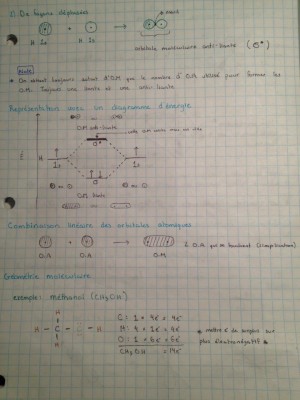 ② De façons déphasées
H 1s H 1s
orbitale moléculaire anti-liante (σ*)
Note
* On obtient toujours autant d'O.M. que le nombre d'O.A. utilisé pour former les
O.M. Toujours une liante et une anti-liante
Représentation avec un diagramme d'énergie
ou
O.M. anti-liante
σ*
E
H H
1s 1s
σ
ou ou
O.M. liante
ou
Combinaison linéaire des orbitales atomiques
+ → 2 O.A. qui se touchent (simplification)
O.A O.A O.M.
Géométrie moléculaire
exemple: méthanol (CH₃OH)
H
H - C - - H
H
C: 1 x 4é = 4é
H: 4 x 1é = 4é
O: 1 x 6é = 6é
CH₃OH = 14é
* mettre é de surplus sur
plus électronégatif *